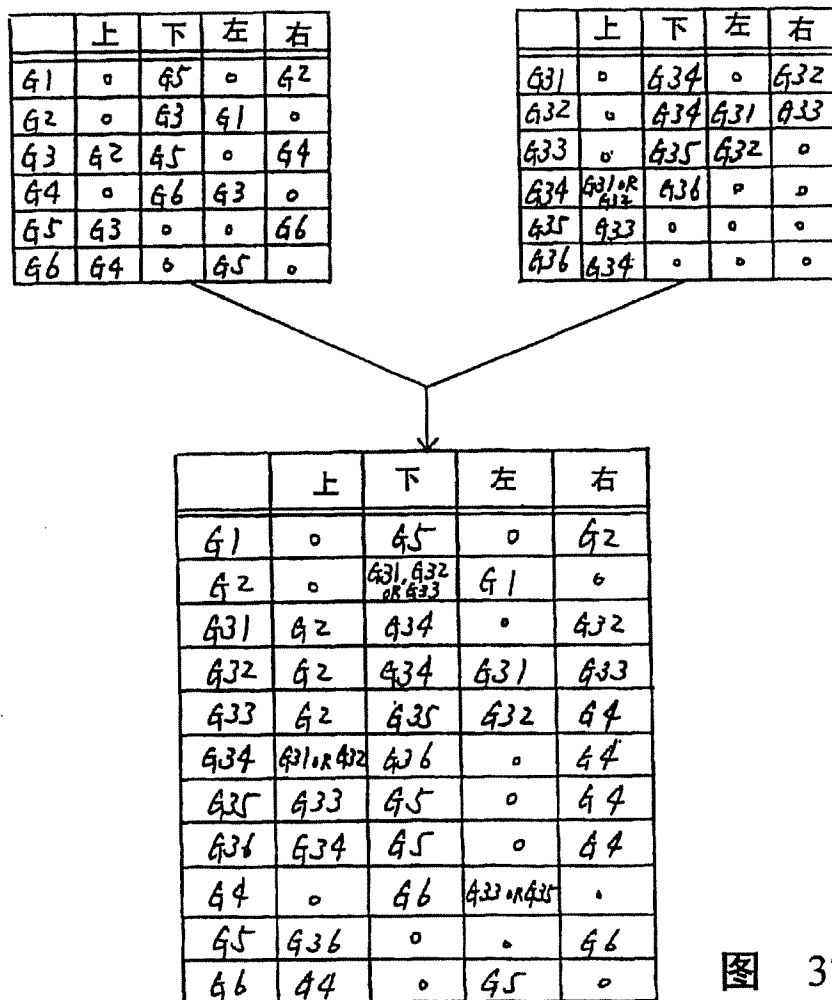 上 下 左 右
G1 o G5 o G2
G2 o G3 G1 o
G3 G2 G5 o G4
G4 o G6 G3 o
G5 G3 o o G6
G6 G4 o G5 o
上 下 左 右
G31 o G34 o G32
G32 o G34 G31 G33
G33 o G35 G32 o
G34 G31 OR G32 G36 o o
G35 G33 o o o
G36 G34 o o o
上 下 左 右
G1 o G5 o G2
G2 o G31, G32 OR G33 G1 o
G31 G2 G34 o G32
G32 G2 G34 G31 G33
G33 G2 G35 G32 G4
G34 G31 OR G32 G36 o G4
G35 G33 G5 o G4
G36 G34 G5 o G4
G4 o G6 G33 OR G35 o
G5 G36 o o G6
G6 G4 o G5 o
图 3